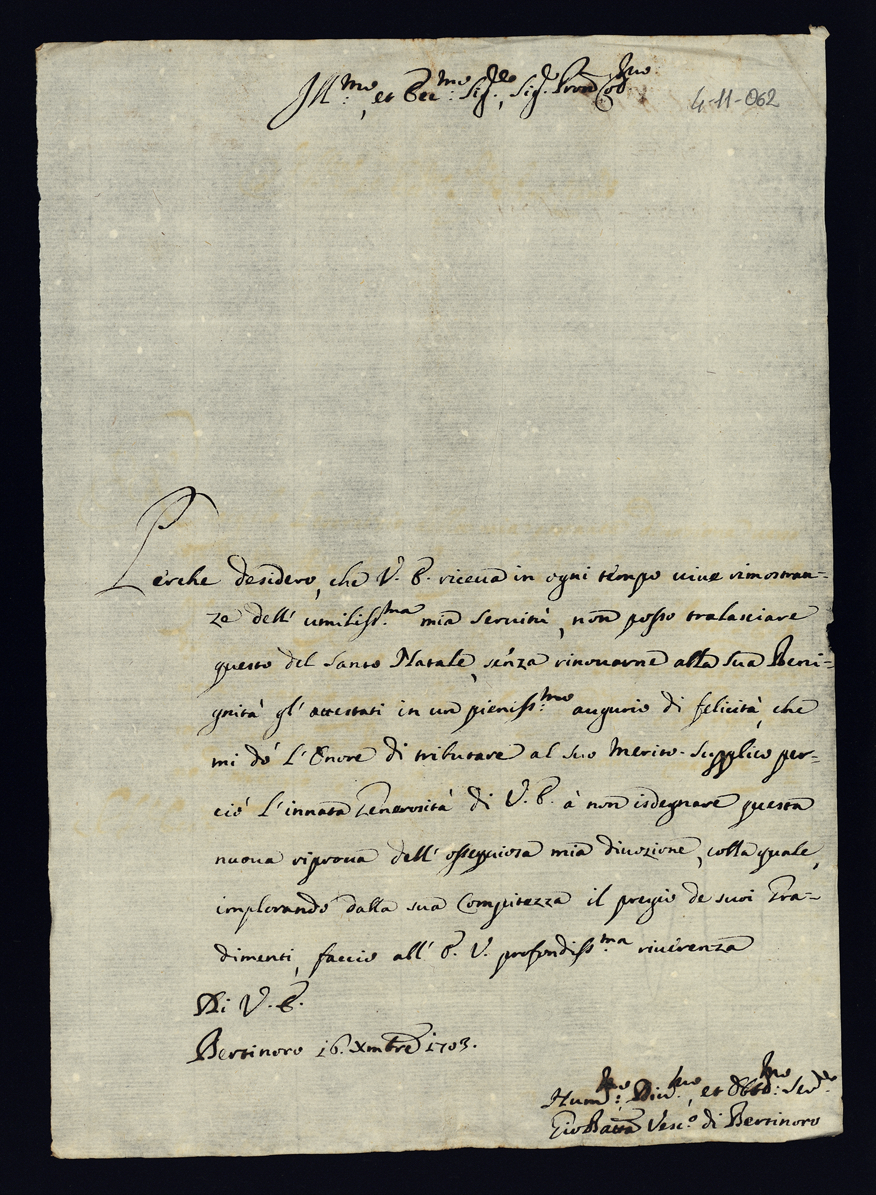 Ill.mo, et Ecc.mo Sig.re, Sig.re Pron Col.mo
4-11-062
Perche desidero, che V. E. riceva in ogni tempo vive rimostran=
ze dell' umiliss.ma mia servitù, non posso tralasciare
questo del Santo Natale, senza rinovarne alla sua Beni=
gnità gl' attestati in un pieniss.mo augurio di felicità, che
mi dò l' Onore di tributare al suo Merito. Supplico per=
ciò l' innata Generosità di V. E. à non isdegnare questa
nuova riprova dell' ossequiosa mia divozione, colla quale,
implorando dalla sua Compitezza il pregio de suoi Gra=
dimenti, faccio all' E. V. profondiss.ma riverenza
Di V. E.
Bertinoro 16. Xmbre 1703.
Hum.mo, Div.mo, et Obb.mo Ser.re
Gio Batta Vesc.o di Bertinoro